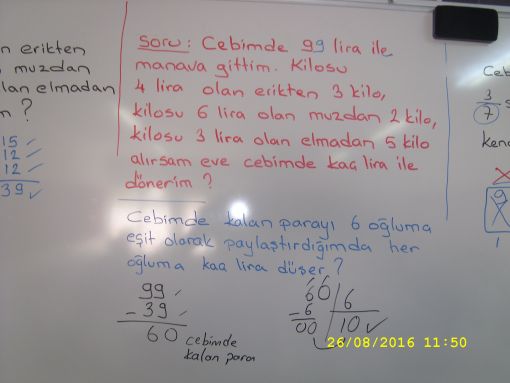 n erikten
muzdan
lan elmadan
m ?
15
12
12
39
Soru: Cebimde 99 lira ile
manava gittim. Kilosu
4 lira olan erikten 3 kilo,
kilosu 6 lira olan muzdan 2 kilo,
kilosu 3 lira olan elmadan 5 kilo
alırsam eve cebimde kaç lira ile
dönerim ?
Cebimde kalan parayı 6 oğluma
eşit olarak paylaştırdığımda her
oğluma kaç lira düşer ?
99
- 39
60 cebimde
kalan para
60 6
- 6 10
00
Ceb
3
7
kend
9
1
26/08/2016 11:50